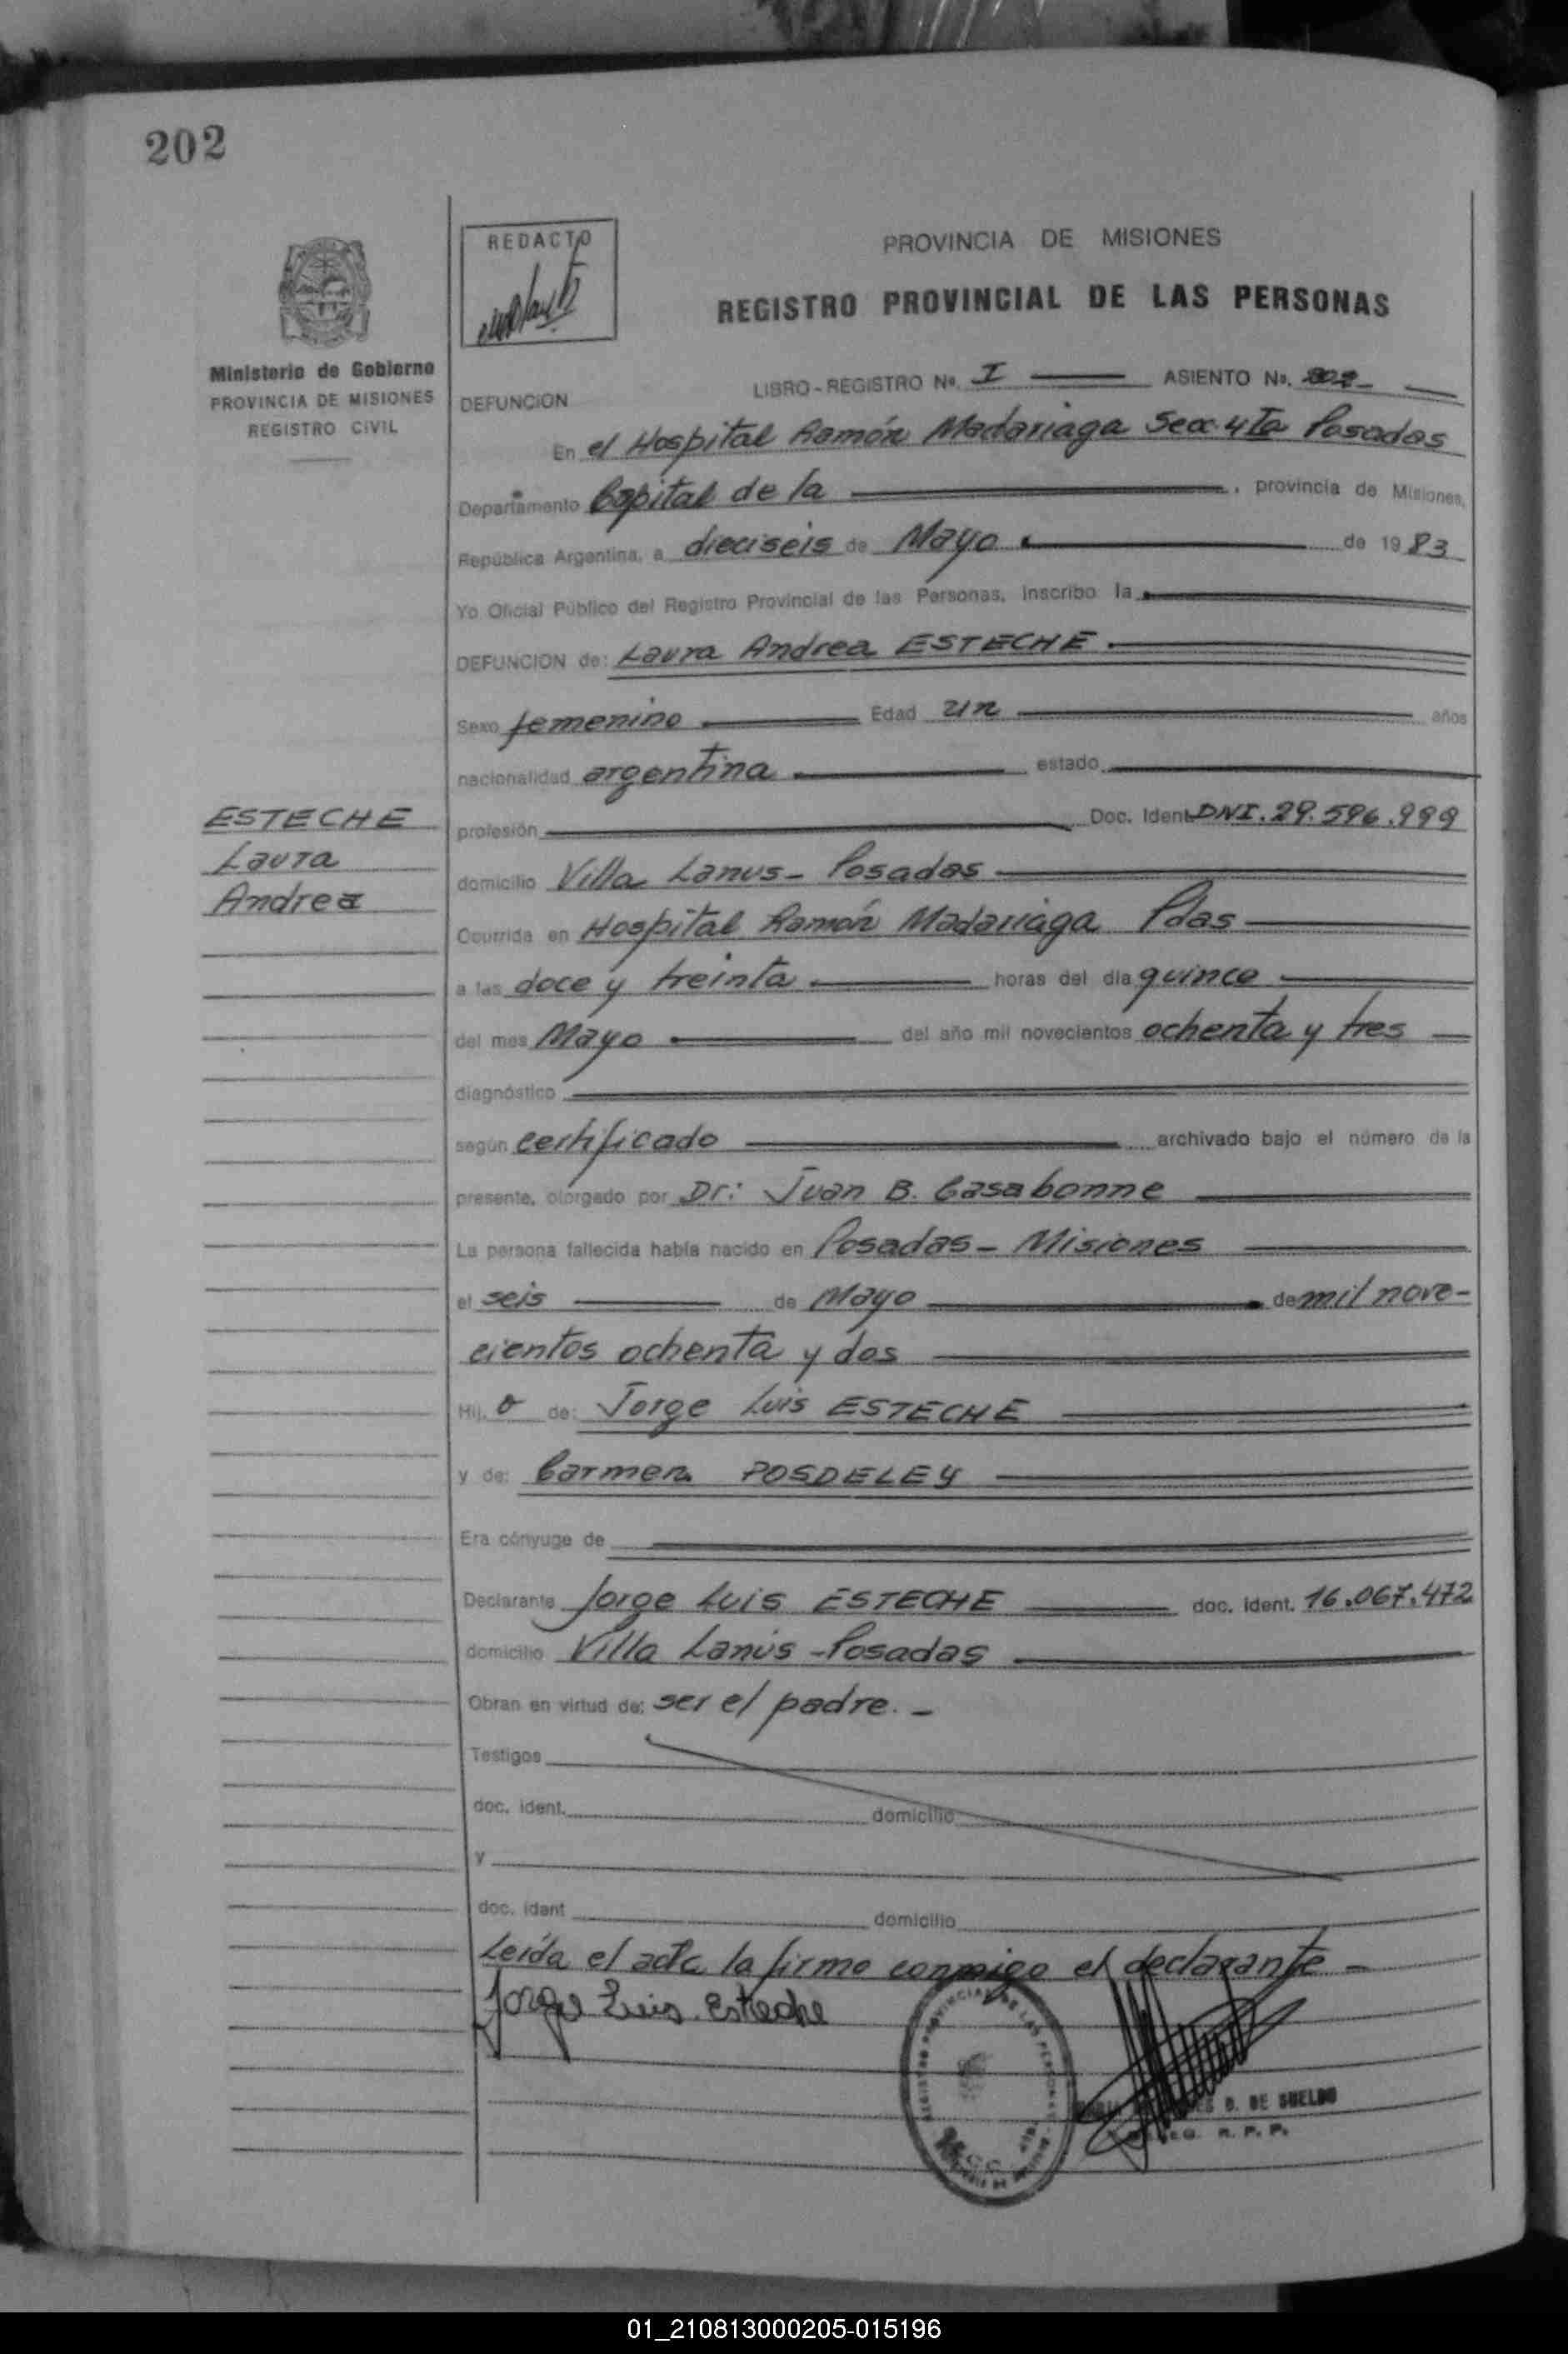 202
REDACTO
PROVINCIA DE MISIONES
REGISTRO PROVINCIAL DE LAS PERSONAS
Ministerio de Gobierno
PROVINCIA DE MISIONES
REGISTRO CIVIL
LIBRO-REGISTRO Nº. I ASIENTO Nº.
DEFUNCION
En el Hospital Ramón Madariaga Secc. 4Ta Posadas
Departamento Capital de la , provincia de Misiones,
República Argentina, a dieciseis de Mayo de 1983
Yo Oficial Público del Registro Provincial de las Personas, inscribo la
DEFUNCION de: Laura Andrea ESTECHE
Sexo femenino Edad un años
nacionalidad argentina estado
ESTECHE
Laura
Andrea
profesión Doc. Ident. DNI. 29.596.999
domicilio Villa Lanus - Posadas
Ocurrida en Hospital Ramón Madariaga Pdas
a las doce y treinta horas del día quince
del mes Mayo del año mil novecientos ochenta y tres
diagnóstico
según certificado archivado bajo el número de la
presente, otorgado por Dr: Juan B. Casabonne
La persona fallecida había nacido en Posadas - Misiones
el seis de Mayo de mil nove-
cientos ochenta y dos
Hij. o de: Jorge Luis ESTECHE
y de: Carmen POSDELEY
Era cónyuge de
Declarante Jorge Luis ESTECHE doc. ident. 16.067.472
domicilio Villa Lanús - Posadas
Obran en virtud de: ser el padre. -
Testigos
doc. ident. domicilio
y
doc. ident domicilio
Leída el acta la firma conmigo el declarante -
Jorge Luis Esteche
REGISTRO PROVINCIAL DE LAS PERSONAS
D. DE SUELDO
R. P. P.
01_210813000205-015196